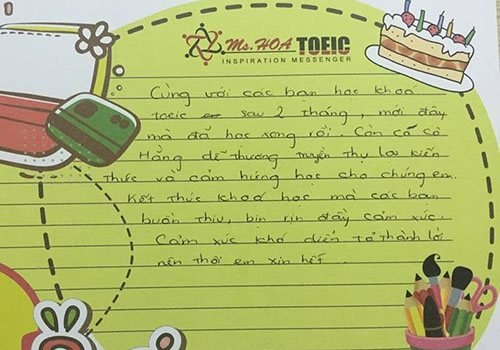 Ms.HOA TOEIC
INSPIRATION MESSENGER
Cùng với các bạn học khoá
toeic sau 2 tháng, mới đây
mà đã học xong rồi. Còn có cô
Hằng dễ thương truyền thụ lại kiến
thức và cảm hứng học cho chúng em.
Kết thúc khoá học mà các bạn
buồn thiu, bịn rịn đầy cảm xúc.
Cảm xúc khó diễn tả thành lời
nên thôi em xin hết...